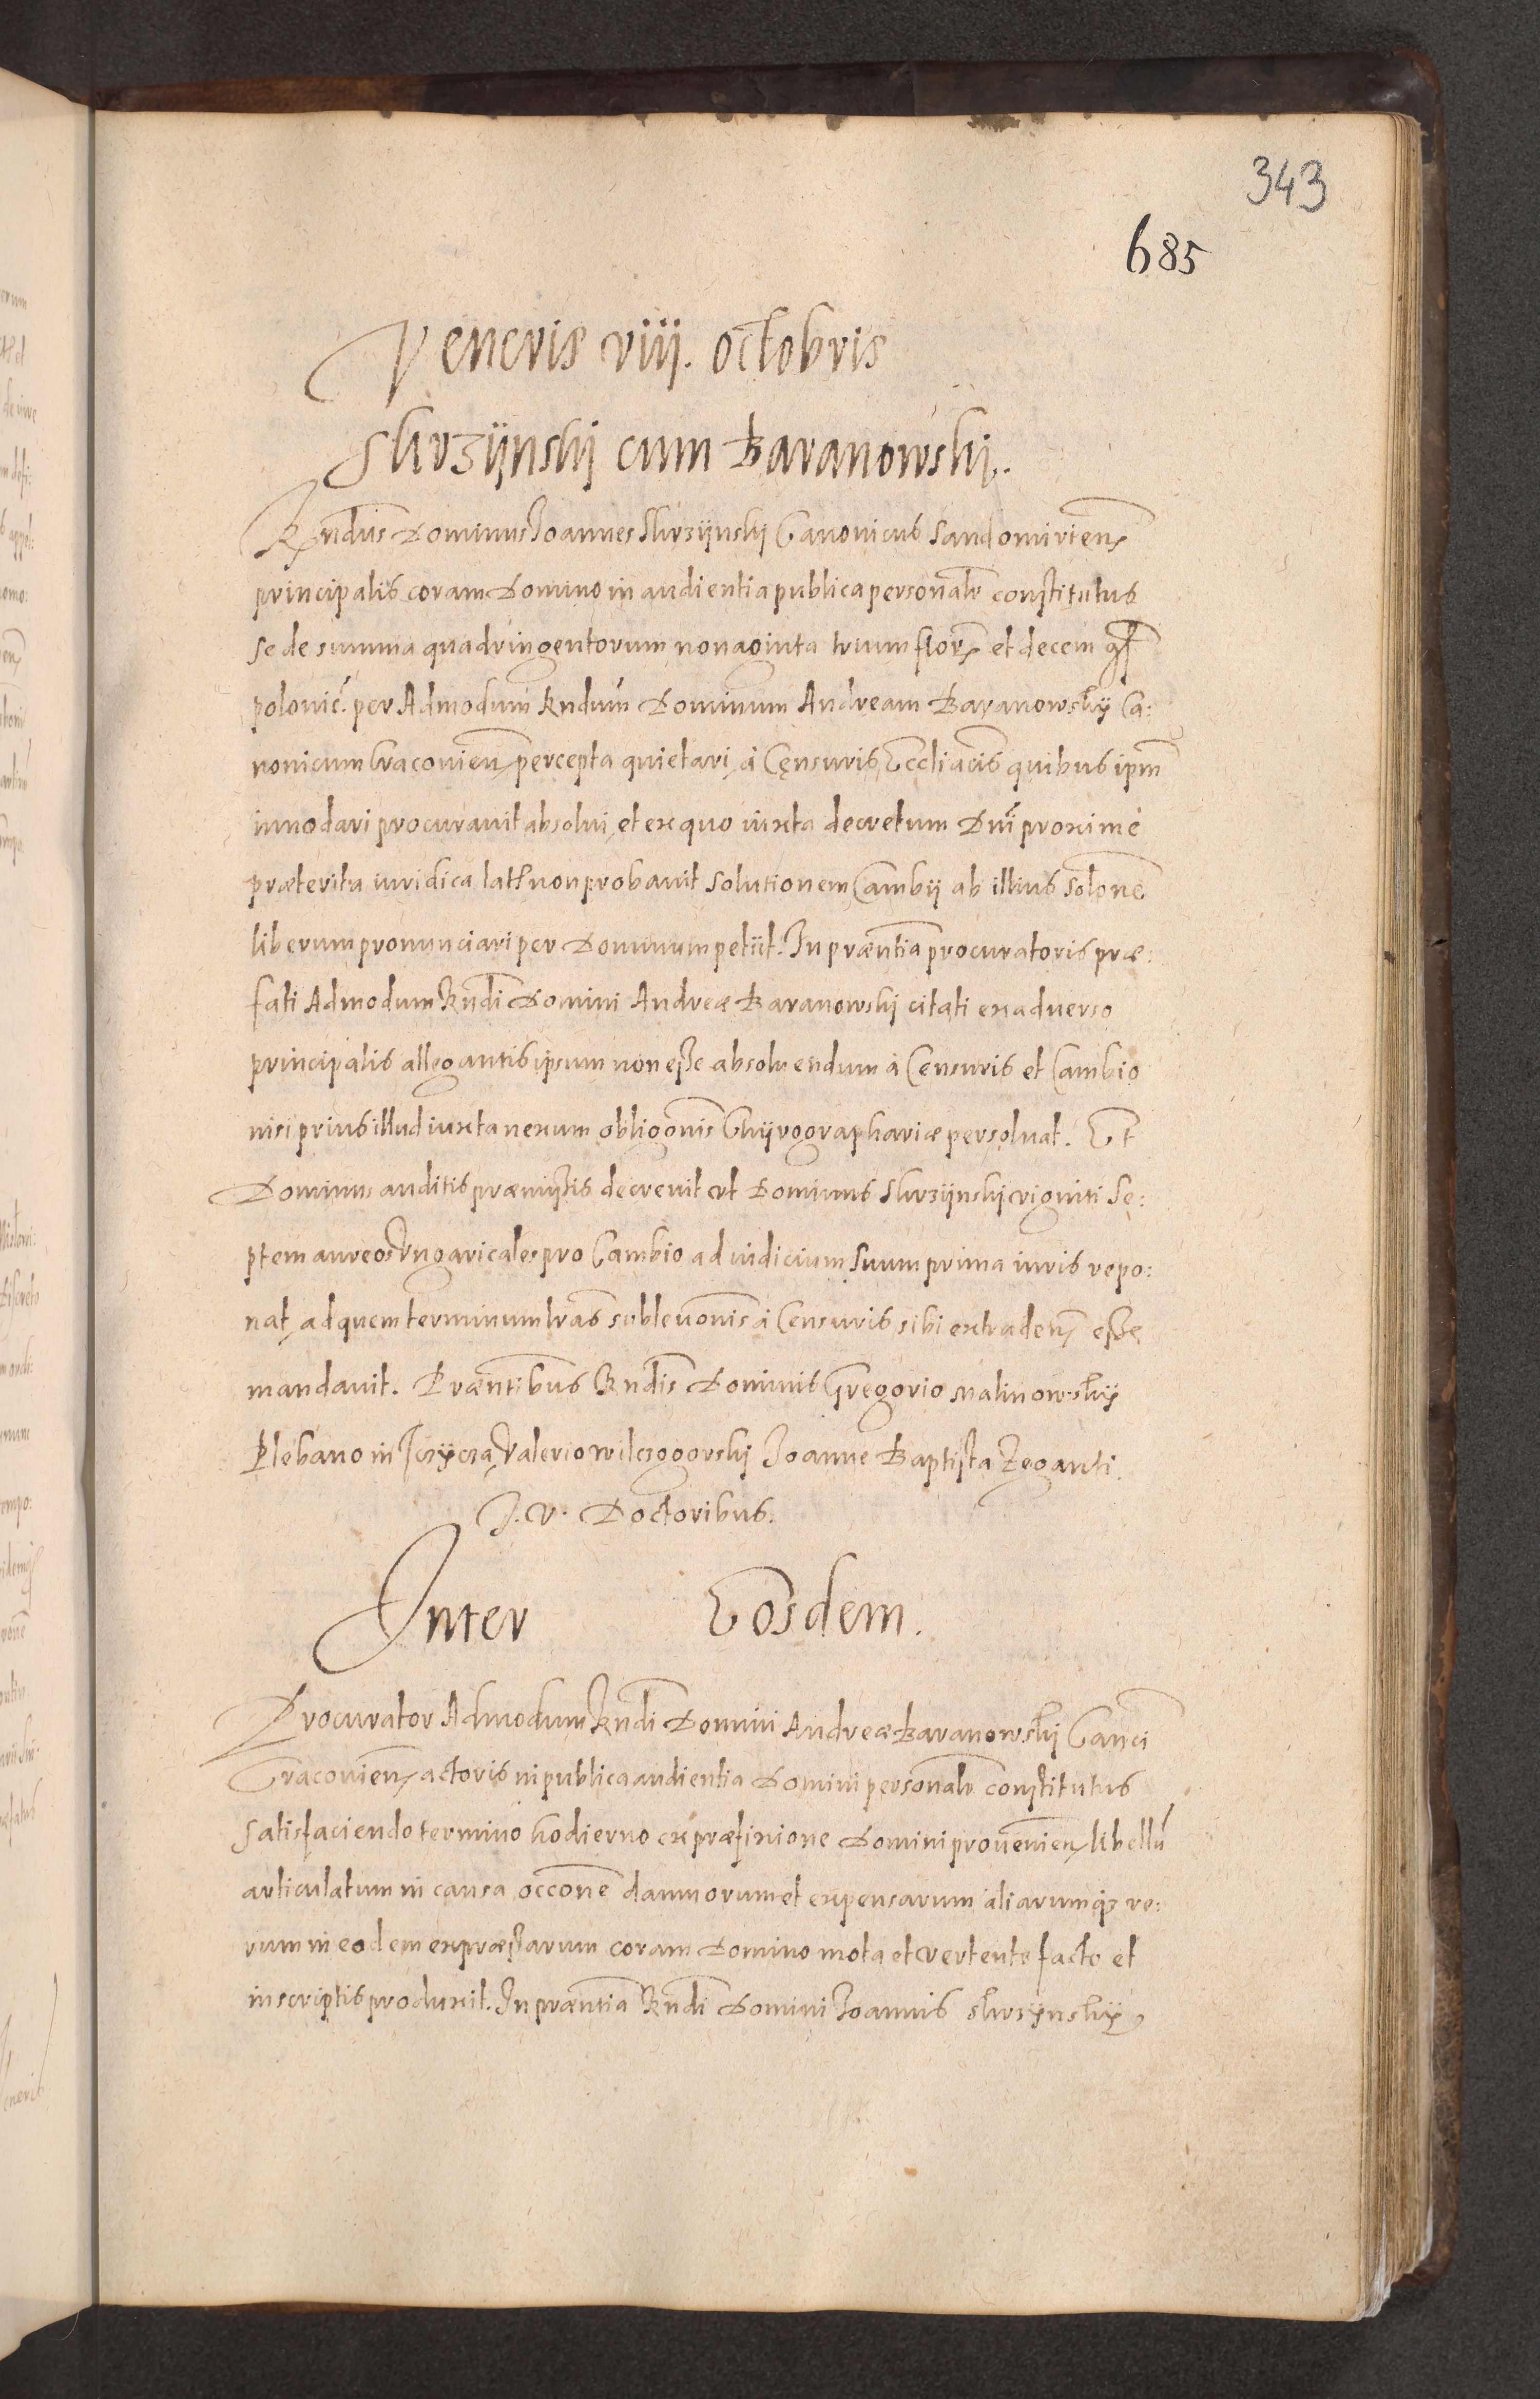 343
685
Veneris viij. octobris
Skrzÿnskj cum Baranowskj.
Rndus Dominus Joannes Skrzÿnskj Canonicus Sandomirien
principalis coram Domino in audientia publica personalr constitutus
se de summa quadringentorum nonaginta trium floren et decem gr
polonic. per Admodum Rndum Dominum Andream Baranowskÿ Ca:
nonicum Cracouien percepta quietari, à Censuris Eccliacis quibus ipm
innodari procurauit absolui, et ex quo iuxta decretum Dni proxime
præterita iuridica latu non probauit solutionem Cambij ab illius solone
liberum pronunciari per Dominum petijt. In præntia procuratoris præ:
fati Admodum Rndi Domini Andreæ Baranowskj citati ex aduerso
principalis allegantis ipsum non esse absoluendum à Censuris et Cambio
nisi prius illud iuxta nexum obligonis Chÿrographariæ persoluat. Et
Dominus auditis præmissis decreuit vt Dominus Skrzÿnskj viginti se:
ptem aureos Vngaricales pro Cambio ad iudicium suum prima iuris repo:
nat, ad quem terminum lras subleuonis à Censuris sibi extraden esse
mandauit. Præntibus Rndis Dominis Gregorio Malinowskÿ
Plebano in Valerio Wilczogorskj Joanne Baptista Zeganti
J. V. Doctoribus.
Inter Eosdem.
Procurator Admodum Rndi Domini Andreæ Baranowskj Canci
Cracouien actoris in publica audientia Domini personalr constitutus
satisfaciendo termino hodierno ex præfixione Domini prouenien, libellu
articulatum in causa occone damnorum et expensarum aliarumq3 re:
rum in eodem expressarum coram Domino mota et vertente facto et
in scriptis produxit. In præntia Rndi Domini Joannis Skrzÿnskÿ